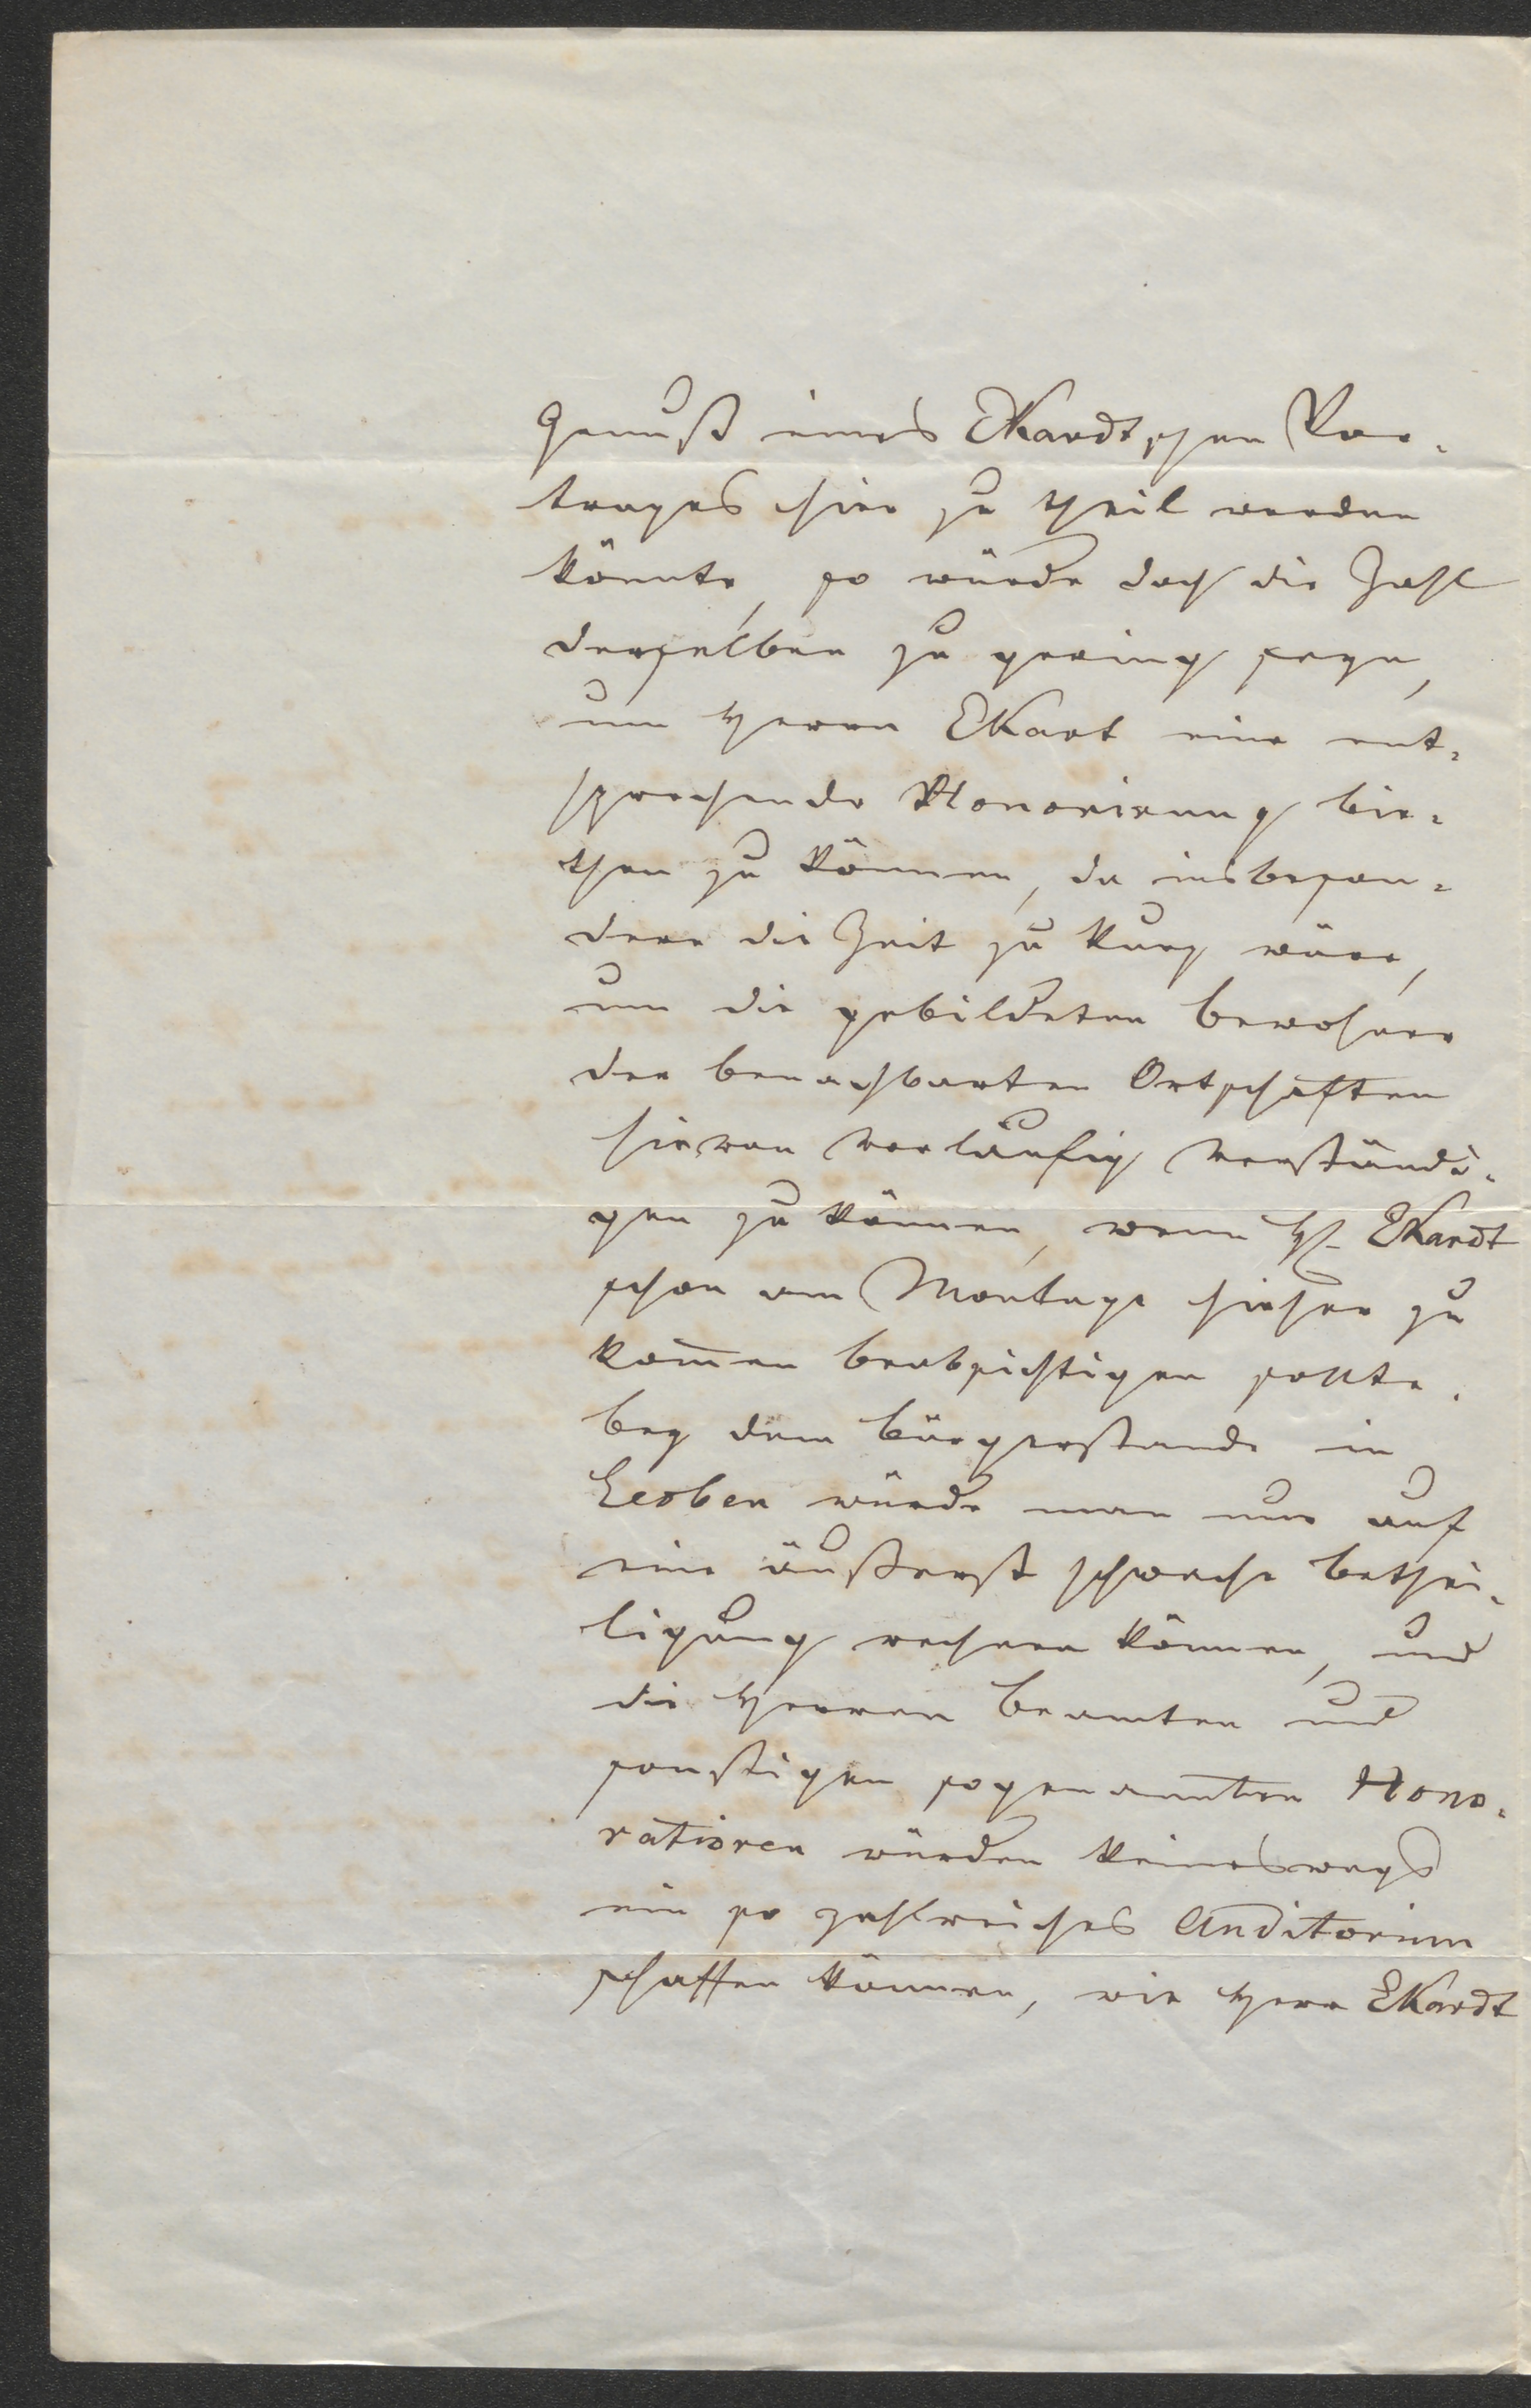 Genuß eines Ekardtschen Vor-
trages hier zu theil werden
könnte, so würde doch die Zahl
derselben zu gering seyn,
um Herrn Ekart eine ent-
sprechende Honorirung bie-
then zu können, da insbeson-
dere die Zeit zu kurz wäre,
um die gebildeten Bewohner
der benachbarten Ortschaften
hievon vorläufig verständi-
gen zu können, wenn H. Ekardt
schon am Montage hieher zu
kom̅en beabsichtigen sollte.
Bey dem Bürgerstande in
Leoben würde man nur auf
eine äußerst schwache Bethei-
ligung rechnen können, und
die Herren Beamten und
sonstigen sogenannten Hono-
ratioren würden keineswegs
ein so zahlreiches Auditorium
schaffen können, wie Herr Ekardt